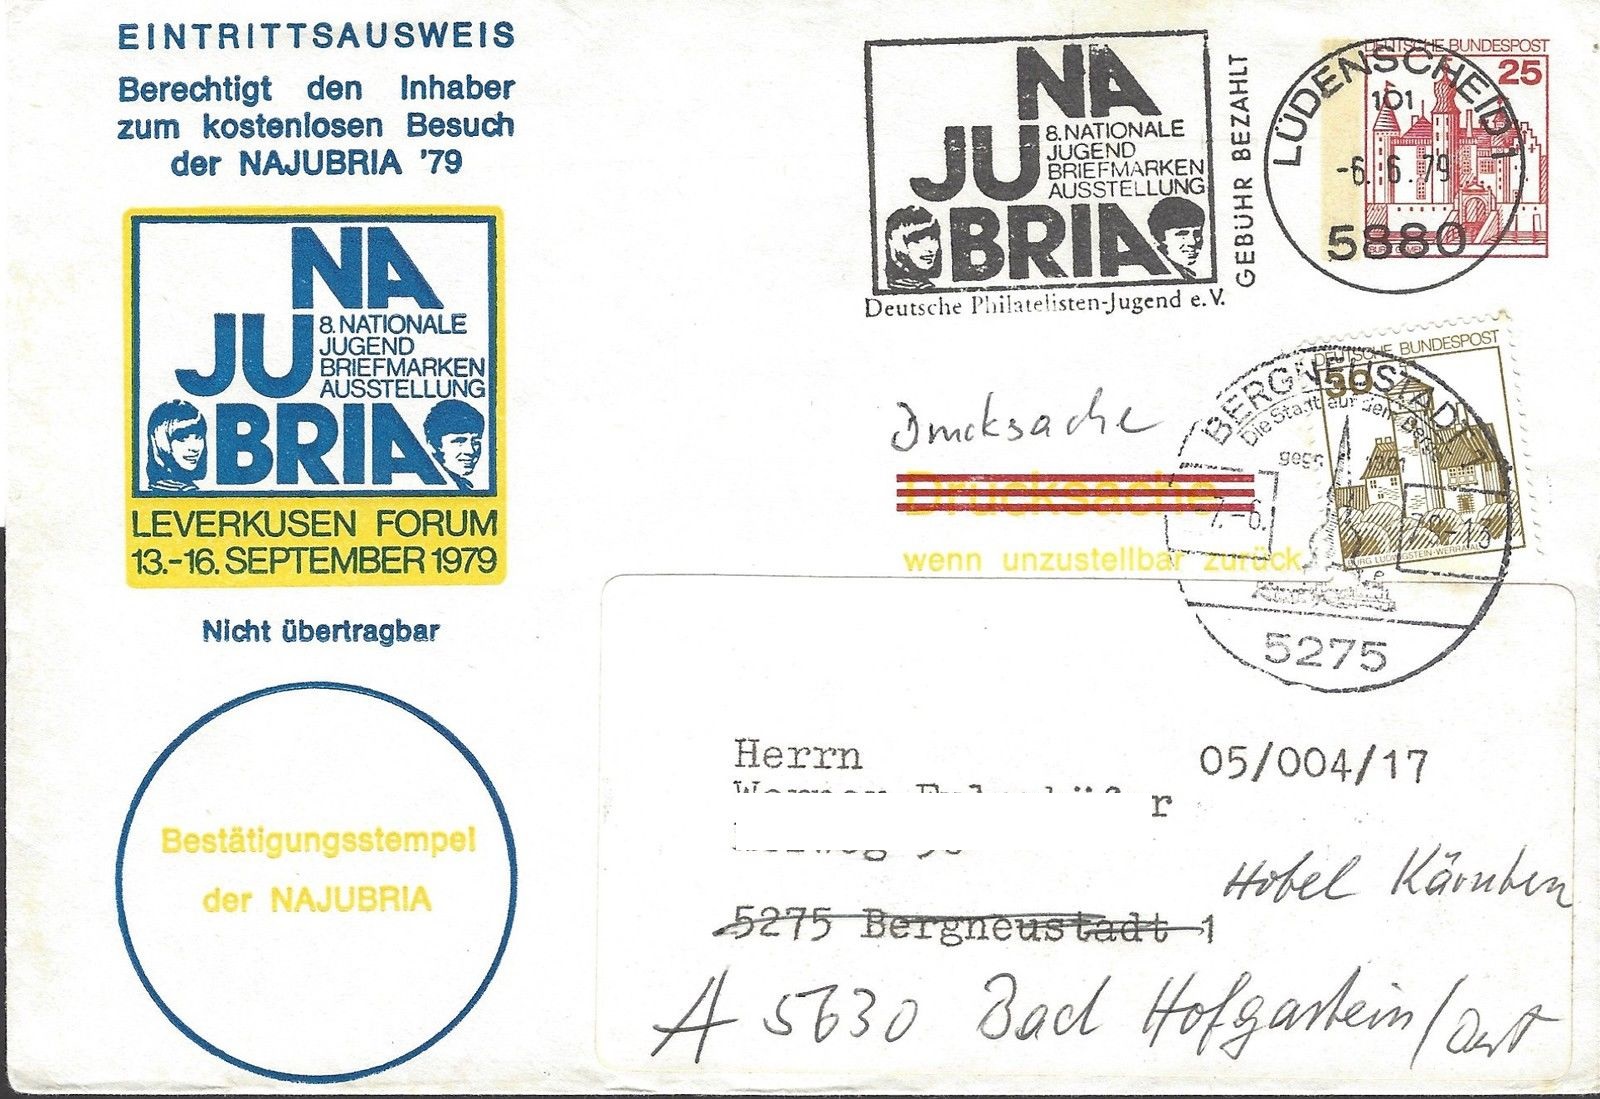 EINTRITTSAUSWEIS
Berechtigt den Inhaber
zum kostenlosen Besuch
der NAJUBRIA '79
NA
JU
8. NATIONALE
JUGEND
BRIEFMARKEN
AUSSTELLUNG
BRIA
LEVERKUSEN FORUM
13.-16. SEPTEMBER 1979
Nicht übertragbar
Bestätigungsstempel
der NAJUBRIA
NA
JU
8. NATIONALE
JUGEND
BRIEFMARKEN
AUSSTELLUNG
BRIA
Deutsche Philatelisten-Jugend e.V.
GEBÜHR BEZAHLT
DEUTSCHE BUNDESPOST
25
LÜDENSCHEID 1
101
-6. 6. 79
5880
BURG GEMEN
DEUTSCHE BUNDESPOST
30
BURG LUDWIGSTEIN-WERRATAL
BERGNEUSTADT 1
Die Stadt auf dem Berge
gegr. 1301
-7.-6. 79-13
5275
Drucksache
Drucksache
wenn unzustellbar zurück
Herrn
05/004/17
r
Hotel Kärnten
5275 Bergneustadt 1
A 5630 Bad Hofgastein/Öst